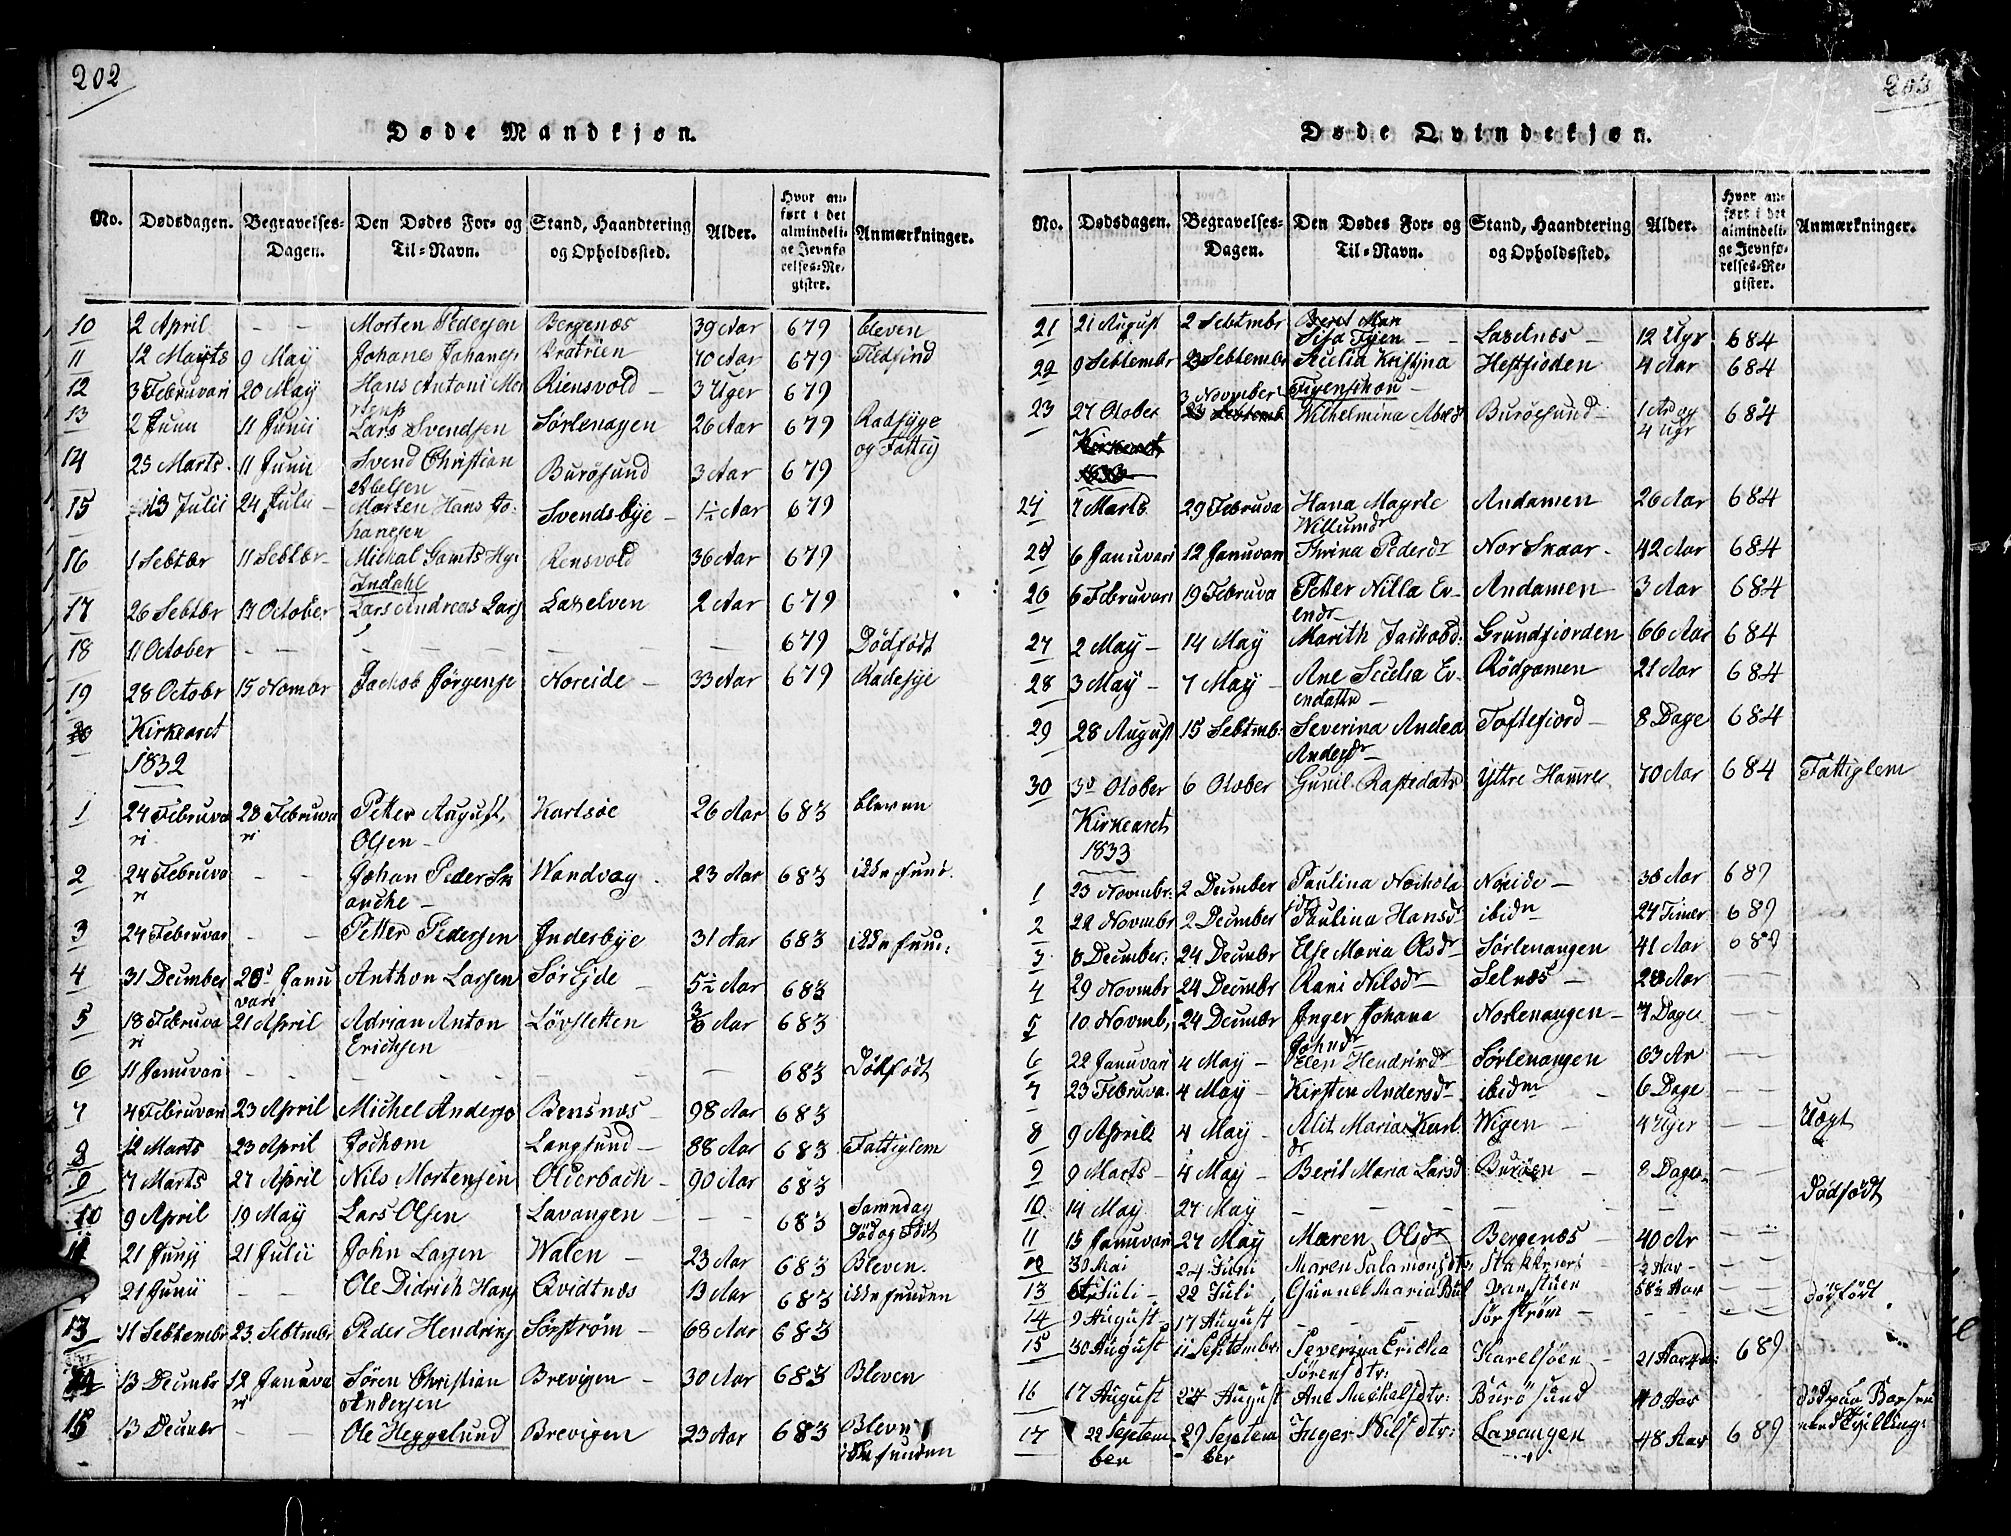 202
Døde Mandkjøn.
No. Dødsdagen. Begravelses-Dagen. Den Dødes For- og Til-Navn. Stand, Haandtering og Opholdssted. Alder. Hvor anført i det almindelige Jevnførelses-Register. Anmærkninger.
10 2 April – – Morten Pedersen Bergenæs 39 Aar 679 bleven
11 12 Mayts 9 May Johanes Johanes 70 Aar 679
12 3 Februvari 20 May Hans Antoni Mor Riensvold – 3 Uger 679
tens
13 2 Junii 11 Junii Lars Svendsen Sørlenagen 26 Aar 679 Radsyge
og Fattig
14 25 Marts. 11 Junii Svend Christian Burøsund 3 Aar 679
Abelsen –
15 13 Julii 24 Julii – Morten Hans Jo- Svendsbye – 1½ Aar 679
hanesen
16 1 Sebtbr 11 Sebtbr – Michal Rensvold 36 Aar 679
Indahl
17 26 Sebtbr 17 October Lars Andreas Lars Laxelven 2 Aar 679
18 11 October – – – – – 679 Dødfødt
19 28 Octobr 15 Nomber Jachob Jørgense Noreide – 33 Aar 679 Radesyge
Kirkearet
1832
1 24 Februva 28 Februva Petter August, Karlsøe 26 Aar 683 bleven
ri. ri Olsen –
2 24 Februva – – Johan Peder Wandvag – 23 Aar 683 ikke fund.
ri
3 24 Februvar – – Petter Pedersen Inderbye 31 Aar 683 ikke fun:
4 31 Decumber 20 Janu Anthon Larsen Sør Ejde – 5½ Aar 683
vari
5 18 Februva 21 April Adrian Anton Løvsletten ¾ Aar 683
ri Erichsen
6 11 Januvari – – – – – 683 Dødfødt
7 4 Februvari 23 April Michel Anderse Bensnæs – 98 Aar 683
8 12 Marts 23 April Jochom Langsund – 88 Aar 683 Fattiglem
9 7 Marts 27 April Nils Mortensen Olderbach – 90 Aar 683
10 9 April 19 May Lars Olsen Lavangen – – – 683 Samndag
Død og Født
11 21 Junij 21 Julii John Larsen Walen – 23 Aar 683 Bleven.
21 Junii Ole Didrich Hans Qvidtnæs 13 Aar 683 ikke funden
13 11 Sebtembr 23 Sebtmbr Peder Hendrihs Sørstrøm – 68 Aar 683
14 13 Decumbr 12 Januva Søren Christian Brevigen – 30 Aar 683 Bleven
ri Andersen
15 13 Decumbr – – Ole Heggelund Brevigen 23 Aar 683 Bleven
ikke funden
203
Døde Qvindekjøn.
No. Dødsdagen. Begravelses-Dagen. Den Dødes For- og Til-Navn. Stand, Haandtering og Opholdssted. Alder. Hvor anført i det almindelige Jevnførelses-Register. Anmærkninger.
21 21 August 2 Sebtmbr Beret Mar Laxelnæs – 12 Ugr 684
22 9 Sebtembr 23 Sebtembr Secilia Kristjna Hessfjoden 4 Aar 684
3 November
23 27 Otober Wilhelmina Abelsd Burøesund – 1 Ar og 684
4 Ugr
Kirkearet
24 7 Marts 29 Februva Hana Magrte Andamen 26 Aar 684
Willumdr
25 6 Januvari 12 Januvari Thrina Pedersdr Nor Skaar – 42 Aar 684
26 6 Februvari 19 Februva Petter Nilla Ev- Andamen 3 Aar 684
endr –
27 2 May – 14 May Marith Jachobd: Grundfiorden 66 Aar 684
28 3 May – 7 May – Ane Scelia Ev- Rødgamen 21 Aar 684
endattr –
29 28 August 15 Sebtmb: Severina Andea Toftefiord – 8 Dage 684
Andersdr –
30 3 Otober 6 Otober Gunil Rastedatr Yttre Hamre 70 Aar 684 Fattiglem
Kirkearet
1833
1 23 Novmbr: 2 Decumber Paulina Nicholai Noreide – 38 Aar 689
2 22 Novmbr 2 Decumber Paulina Hansdr ibidm 24 Timer 689
3 8 Decumber: 24 Decumber Else Maria Olsdr – Sørlenangen 41 Aar 689
4 29 Novmbr 24 Decmbr Rani Nilsdr – Selnæs – 28 Aar – –
5 10 Novmb, 24 Decmbr Inger Johana Norlenangen – 7 Dage – –
Johndr
6 22 Januvari 4 May – Elen Hendrihdr Sørlenangen 63 Ar – –
7 23 Februva. 4 May – Kirsten Andersdr ibidm – 6 Dage – –
8 9 April 4 May – Alit Maria Karl Wigen – 4 Uger – – Uægt
dr
9 9 Marts – 4 May – Berit Maria Larsd Burøen – 8 Dage – –
10 14 May 27 May – – – – Dødfødt
11 15 Januvari 27 May Maren Olsdr Bergenæs – 40 Ar – –
12 30 Mai 24 Juni Maren Salamonsdtr, Stakkenes 2 Aar – – –
13 Juli – 22 Juli Gunnel Maria Vanstuen 58½ Aar – –
14 9 August – 17 August – – Sørstrøm – – – – dødfødt
15 30 August 11 Septembr: Severina Ericka Karelsøen – 21 Aar 689
Sørensdtr.
16 17 August 24 August Ane Michelsdtr: Burøsund 40 Aar
17 22 Septem 29 Septem Inger Nilsdtr: Lavangen 48 Aar 689
ber ber